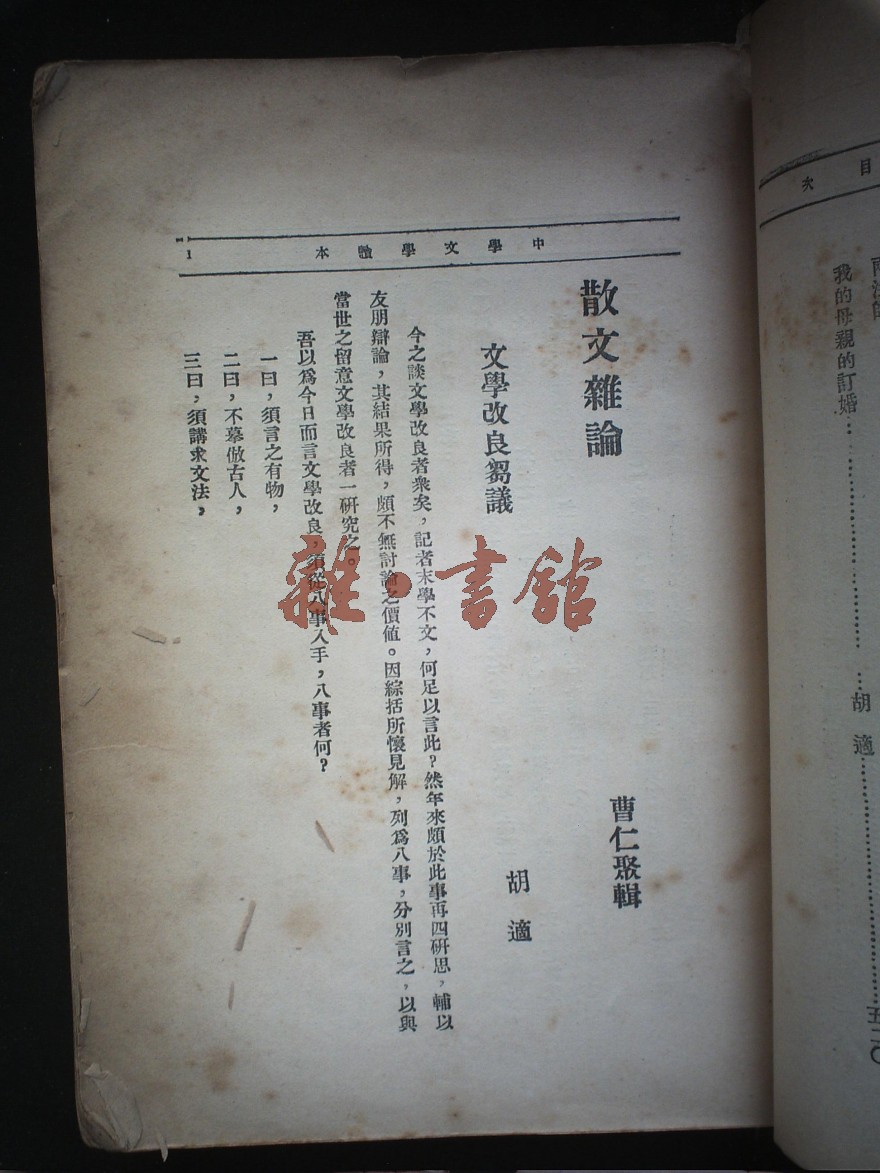 目次
我的母親的訂婚……………………胡適……………………五二〇
中學文學讀本
1
散文雜論
曹仁聚輯
文學改良芻議
胡適
今之談文學改良者衆矣，記者末學不文，何足以言此？然年來頗於此事再四研思，輔以
友朋辯論，其結果所得，頗不無討論之價値。因綜括所懷見解，列爲八事，分別言之，以與
當世之留意文學改良者一研究之。
吾以爲今日而言文學改良，須從八事入手，八事者何？
一曰，須言之有物，
二曰，不摹倣古人，
三曰，須講求文法，
雜·書館